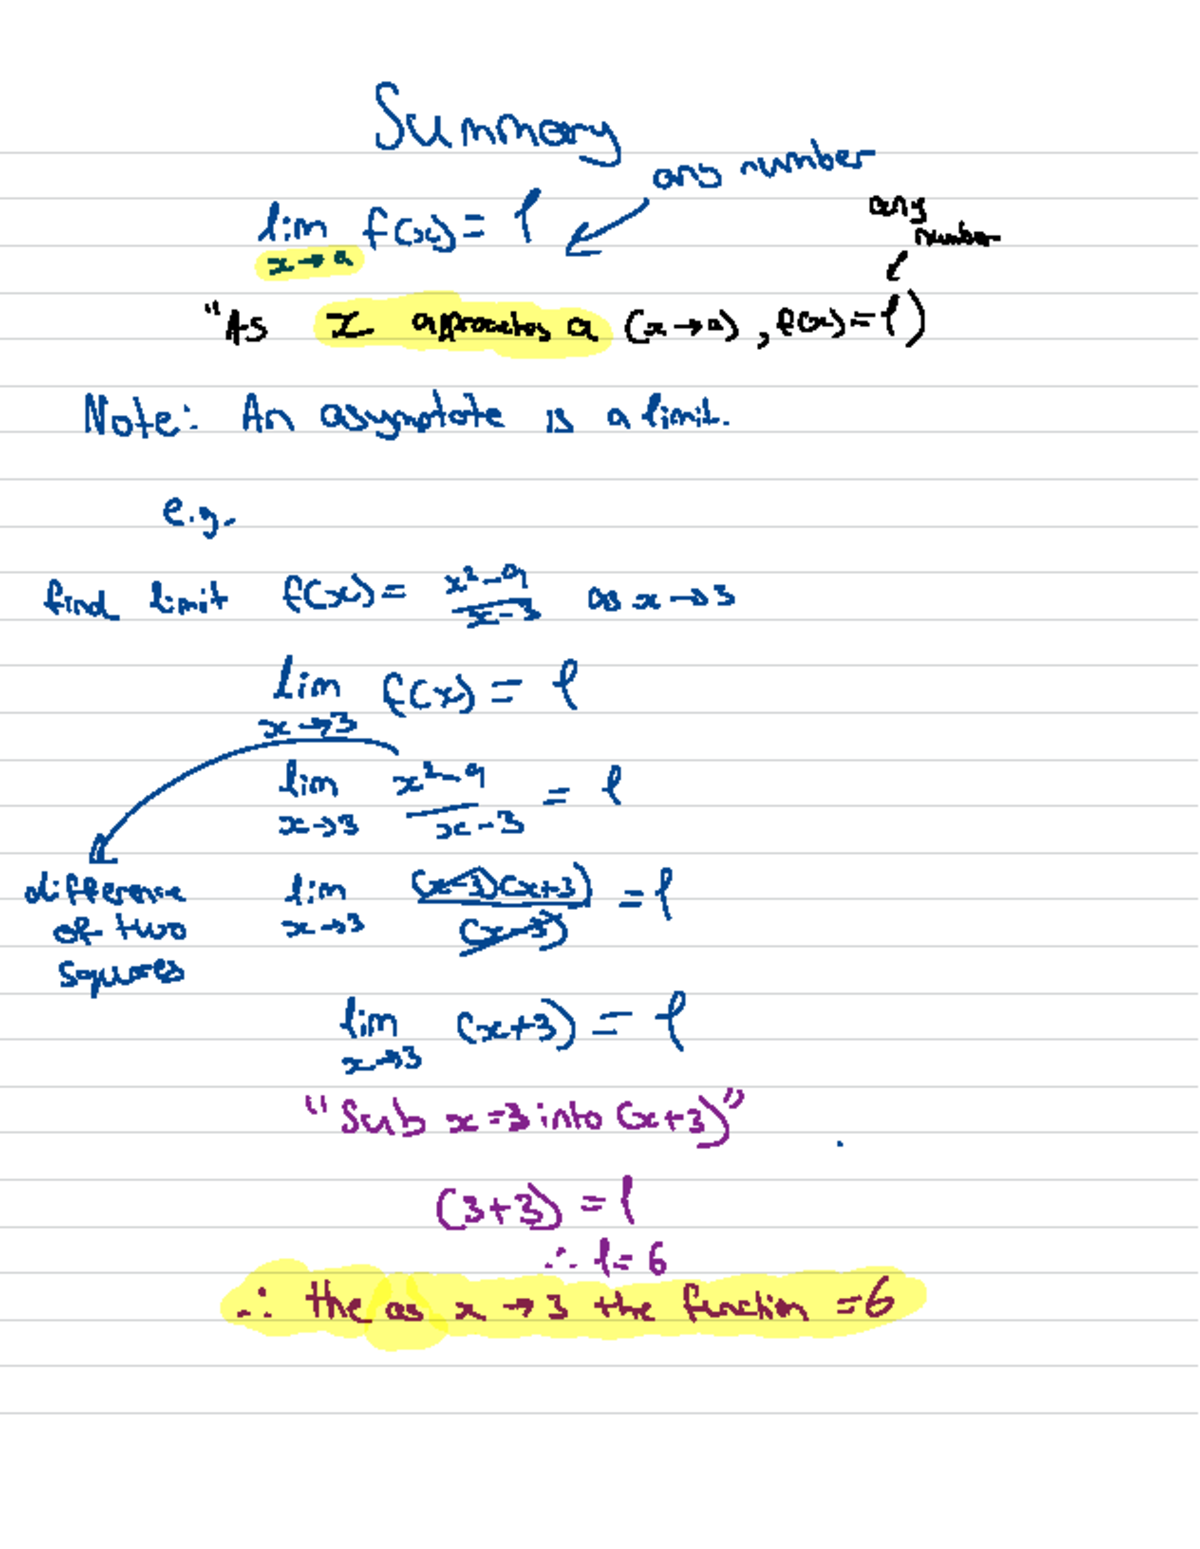 Summary
any number
lim f(x) = l
x → a
any
number
"As x approaches a (x → a), f(x) = l)
Note: An asymptote is a limit.
e.g.
find limit f(x) = x² - 9 / x - 3 as x → 3
lim f(x) = l
x → 3
lim x² - 9 / x - 3 = l
x → 3
difference
of two
squares
lim (x-3)(x+3) / (x-3) = l
x → 3
lim (x+3) = l
x → 3
"Sub x = 3 into (x+3)"
(3+3) = l
∴ l = 6
∴ the as x → 3 the function = 6